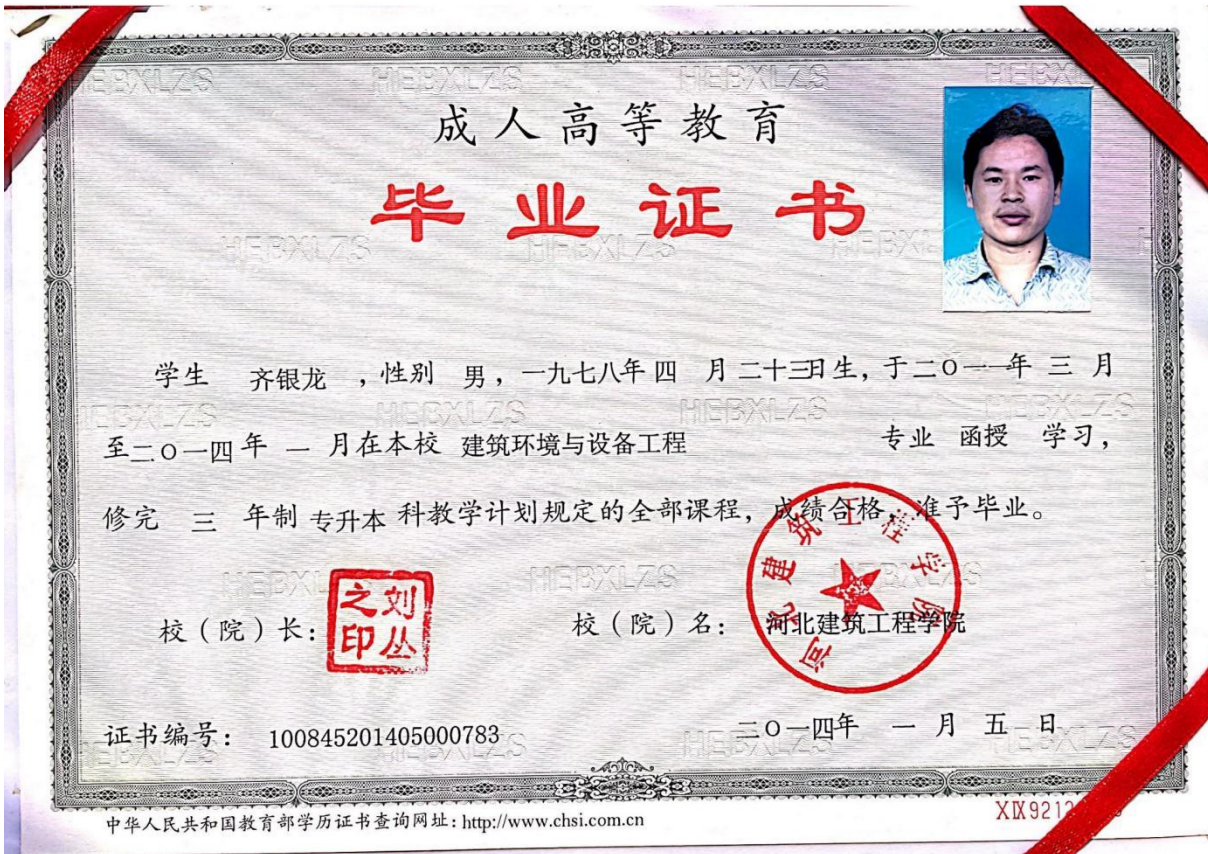 成人高等教育
毕业证书
学生 齐银龙 ，性别 男，一九七八年 四 月 二十三日生，于二〇一一年 三 月
至二〇一四年 一 月在本校 建筑环境与设备工程 专业 函授 学习，
修完 三 年制 专升本 科教学计划规定的全部课程，成绩合格，准予毕业。
校（院）长：
刘丛之印
校（院）名： 河北建筑工程学院
河北建筑工程学院
证书编号： 100845201405000783
二〇一四年 一 月 五 日
中华人民共和国教育部学历证书查询网址：http://www.chsi.com.cn
HEBXLZS